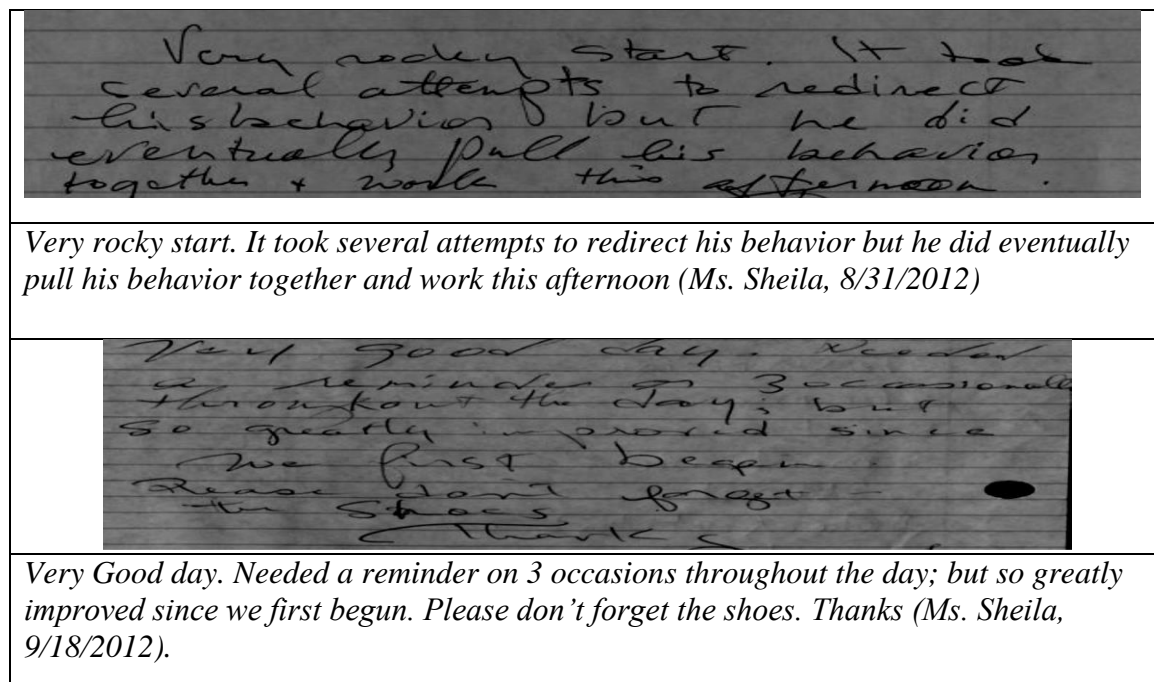 Very rocky start. It took
several attempts to redirect
his behavior but he did
eventually pull his behavior
together + work this afternoon.
Very rocky start. It took several attempts to redirect his behavior but he did eventually
pull his behavior together and work this afternoon (Ms. Sheila, 8/31/2012)
Very good day. Needed
a reminder on 3 occasionally
throughout the day; but
so greatly improved since
we first begun.
Please don't forget -
the shoes
Thanks
Very Good day. Needed a reminder on 3 occasions throughout the day; but so greatly
improved since we first begun. Please don’t forget the shoes. Thanks (Ms. Sheila,
9/18/2012).